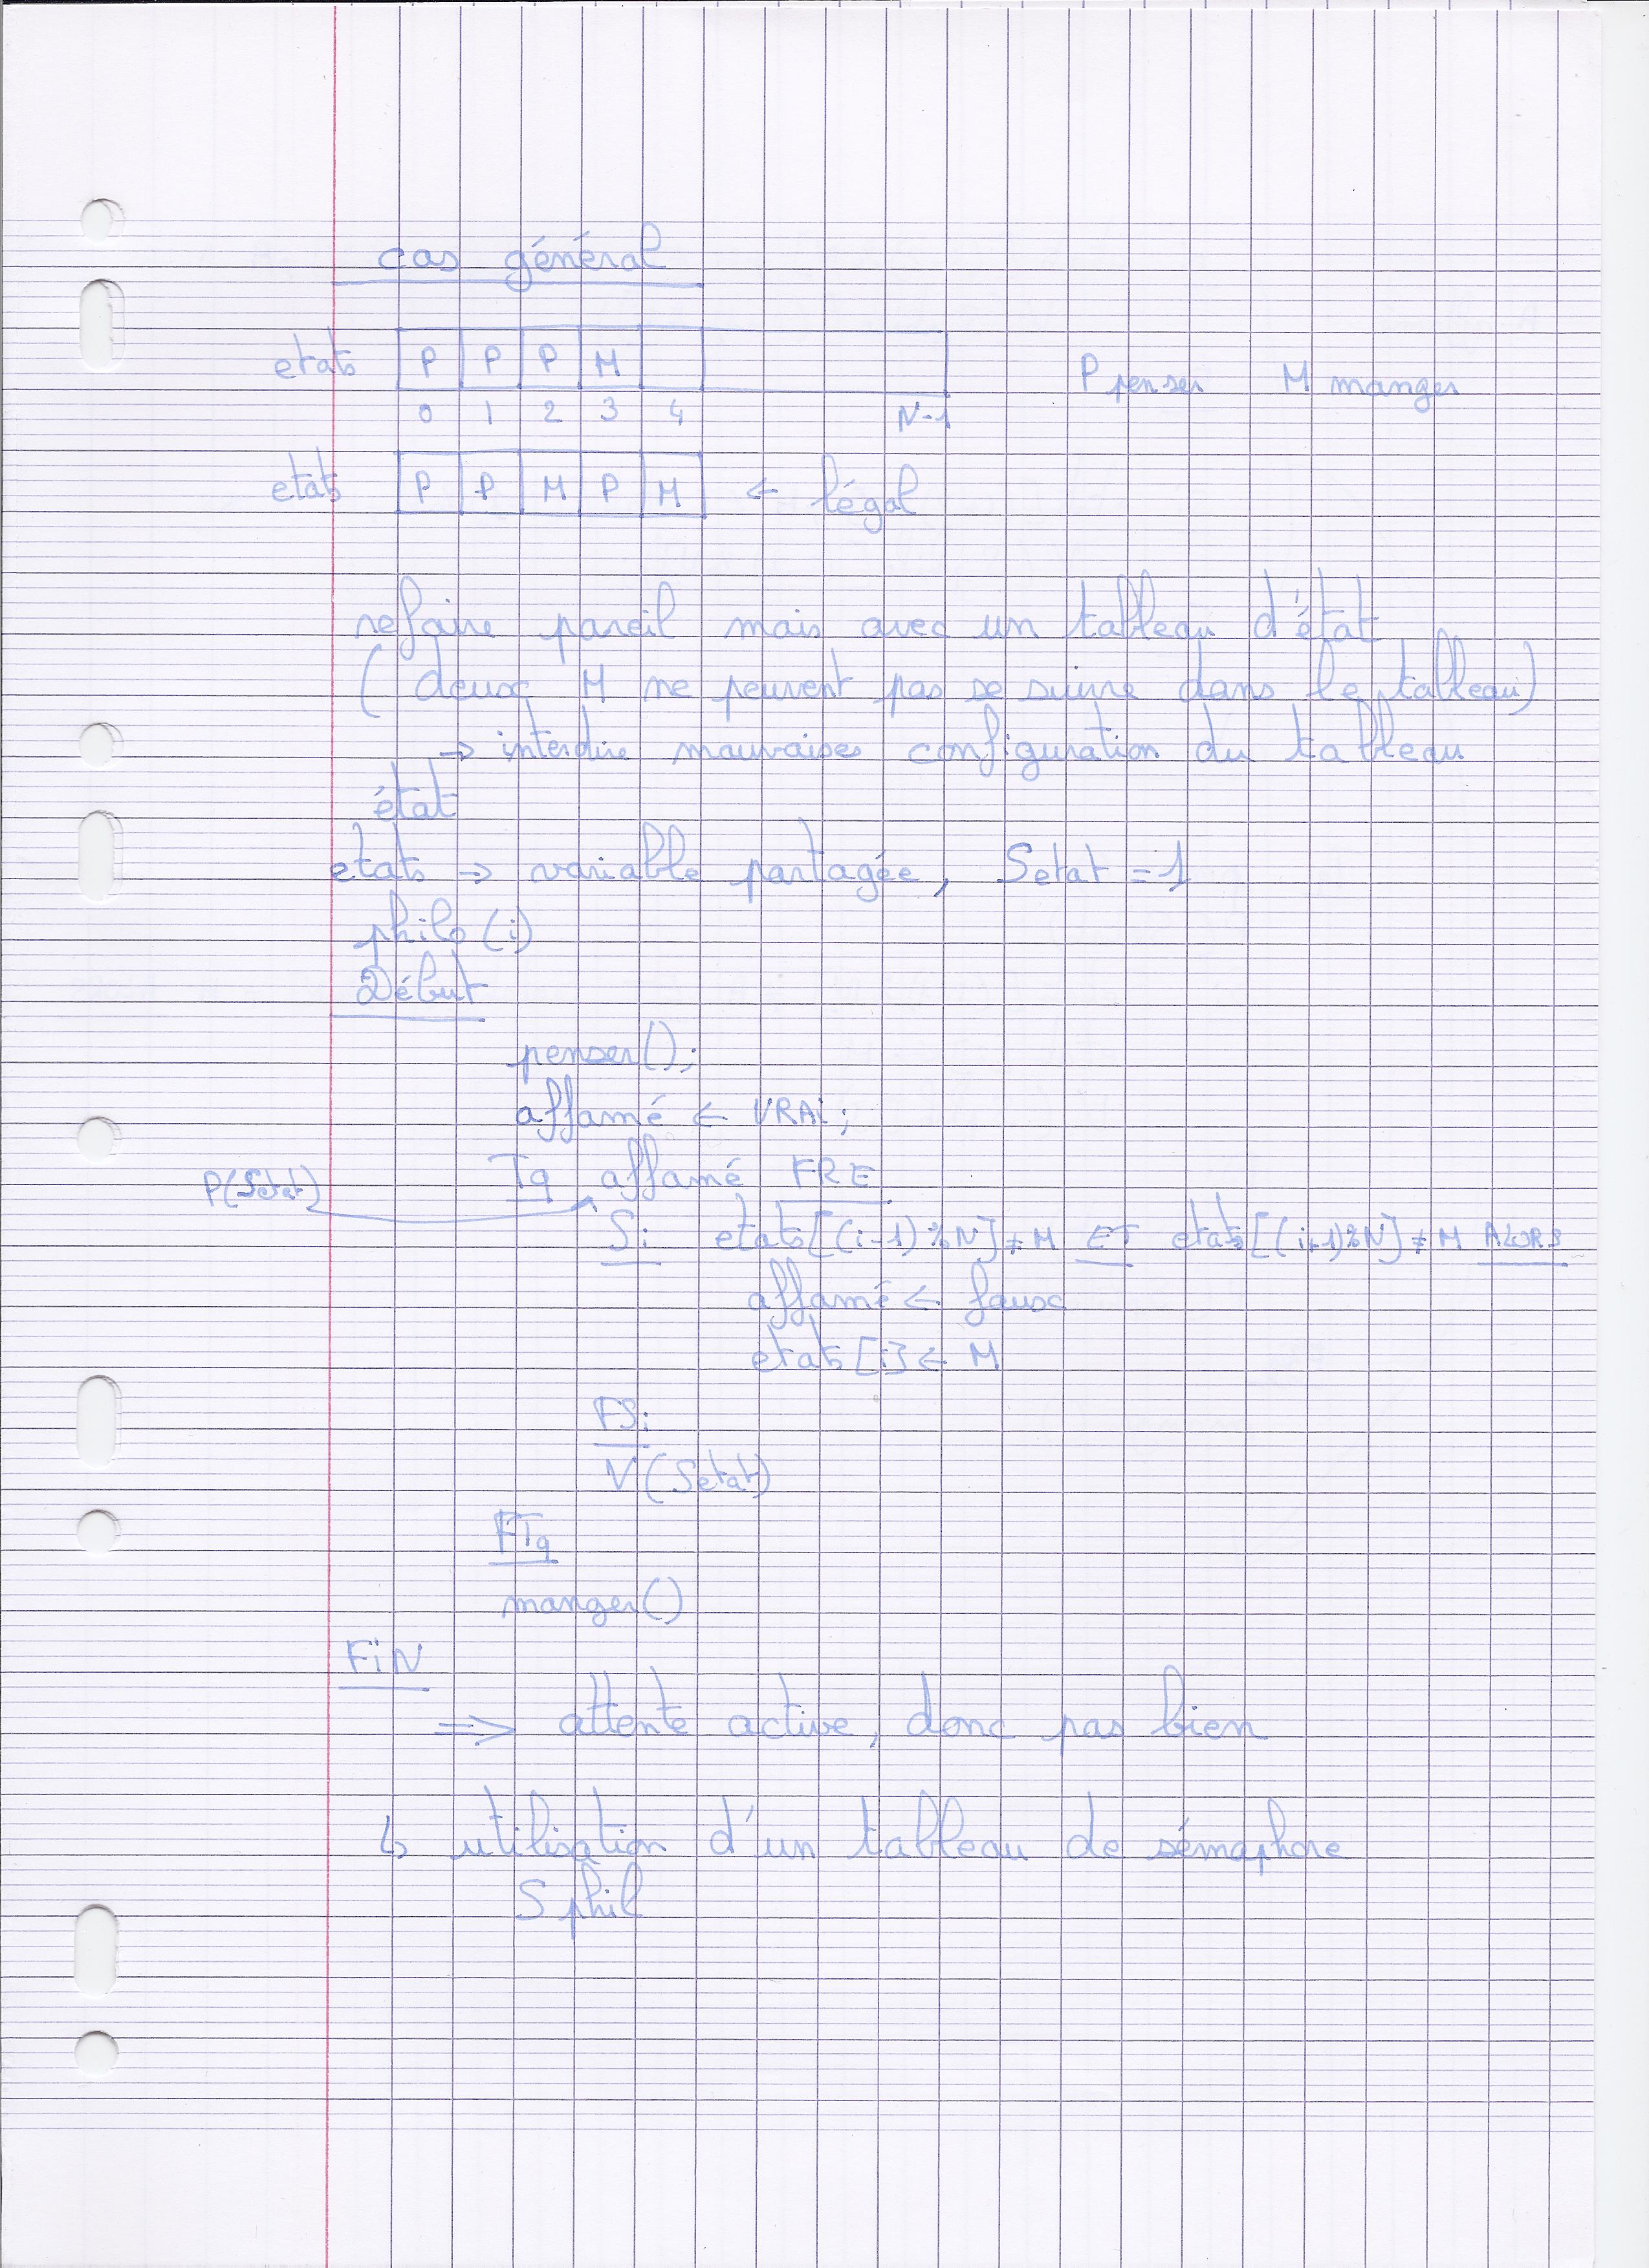 cas général
etats P P P M
P penser M manger
0 1 2 3 4 N-1
etats P P M P M ← légal
refaire pareil mais avec un tableau d'état
( deux M ne peuvent pas se suivre dans le tableau)
→ interdire mauvaises configuration du tableau
état
etats → variable partagée, Setat = 1
philo (i)
Début
penser();
affamé ← VRAi;
Tq affamé FRE
P(Setat)
Si etats[(i-1)%N]≠M ET etats[(i+1)%N]≠M ALORS
affamé ← faux
etats[i] ← M
FSi
V(Setat)
FTq
manger()
FiN
=> attente active, donc pas bien
↳ utilisation d'un tableau de sémaphore
S phil